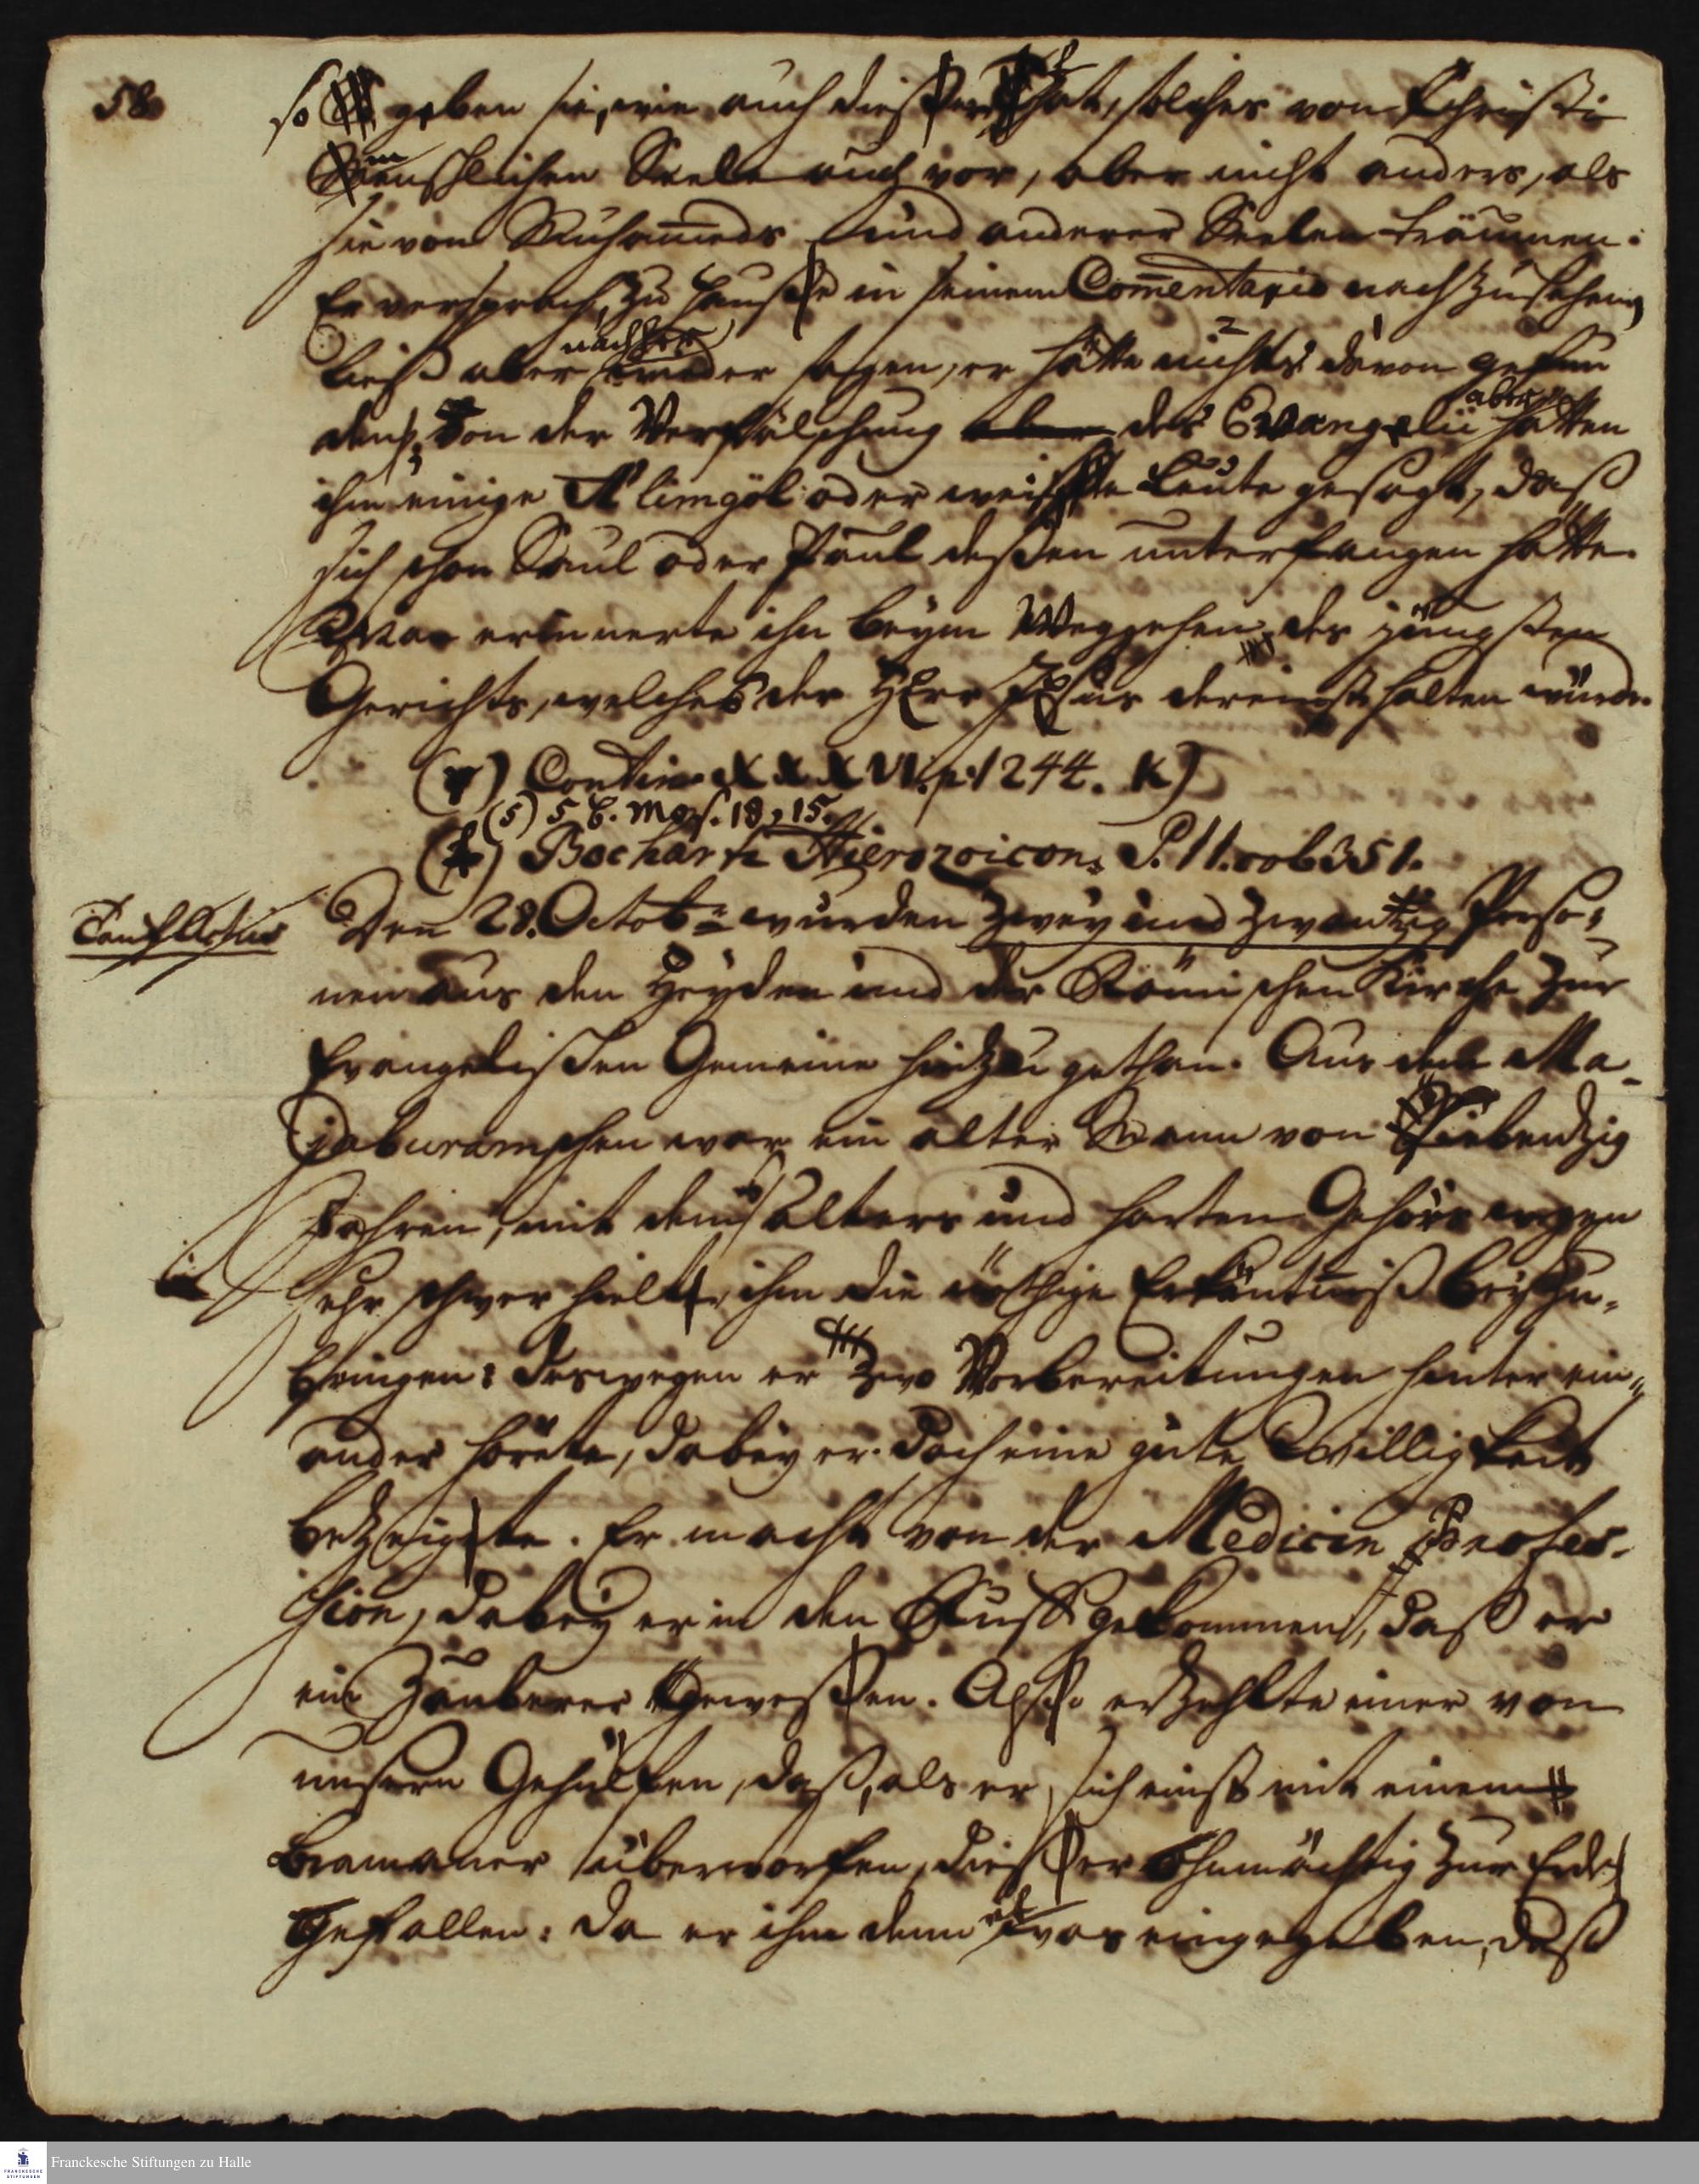 58.
so geben sie, wie auch dieser that, solches von Christi
menschlichen Seele auch vor, aber nicht anders, als
sie von Muhameds und anderer Seelen träumen.
Er versprach, zu Hause in seinem Commentario nachzusehen,
ließ aber nachher wieder sagen, er hätte nichts davon gefun
den; von der Verfälschung aber des Evangelii aber hätten
ihm einige Alimgöl oder weise Leute gesagt, daß
sich schon Saul oder Paul deßen unterfangen hätte.
Man erinnerte ihn beym Weggehen des jüngsten
Gerichts, welches der HErr JEsus dereinst halten würde.
(r) Contin. XXXVI. p. 1244. k)
(s) 5 B. Mos. 18, 15.
(t) Bocharti Hierozoicon. P. II. 351.
Tauf Actus
Den 28. Octobr. wurden zwey und zwantzig Perso-
nen aus den Heyden und der Römischen Kirche zur
Evangelischen Gemeine hinzu gethan. Aus dem Ma-
jaburamschen war ein alter Mann von siebenzig
Jahren, mit dem es Alters und harten Gehörs wegen
sehr schwer hielt, ihm die nöthige Erkäntniß beyzu-
bringen: deswegen er zwo Vorbereitungen hinter ein-
ander hörete, dabey er doch eine gute Willigkeit
bezeigte. Er macht von der Medicin Profes-
sion, dabey er in den Ruff gekommen, daß er
ein Zauberer gewesen. Also erzehlte einer von
unsern Gehülfen, daß, als er sich einst mit einem
Bramaner überworfen, dieser ohnmächtig zur Erde
gefallen: da er ihm denn etwas eingegeben, daß
Franckesche Stiftungen zu Halle